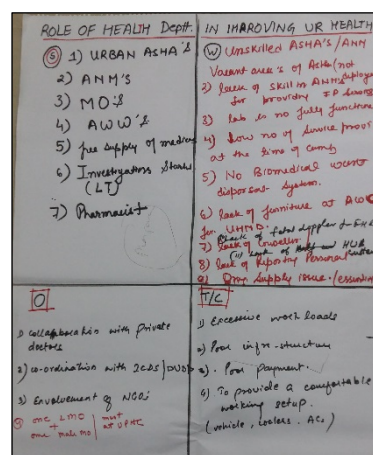 ROLE OF HEALTH Deptt. IN IMPROVING UR HEALTH
(S) 1) URBAN ASHA'S
2) ANM'S
3) MO'S
4) AWW'S
5) free supply of medicine
6) Investigations
(LT)
7) Pharmacist
(W) Unskilled ASHA'S / ANM
Vacant area's of Asha (not
2) lack of skill in ANM's
for providing
3) lab is no fully functional
4) Low no of
at the time of
5) No Biomedical
disposal system.
6) lack of furniture at AWC
for UHND.
7) lack of
lack of fetal doppler
8) lack of Reporting Personal
9) Drug Supply issue.
O
1) Collaboration with private
doctors
2) co-ordination with ICDS
3) Envolvement of NGO's
one LMO
+
one male MO
must
at UPHC
T/C
1) Excessive work loads
2) Poor infra-structure
3) Poor payment.
4) To provide a comfortable
working setup.
(vehicle, coolers, ACs)